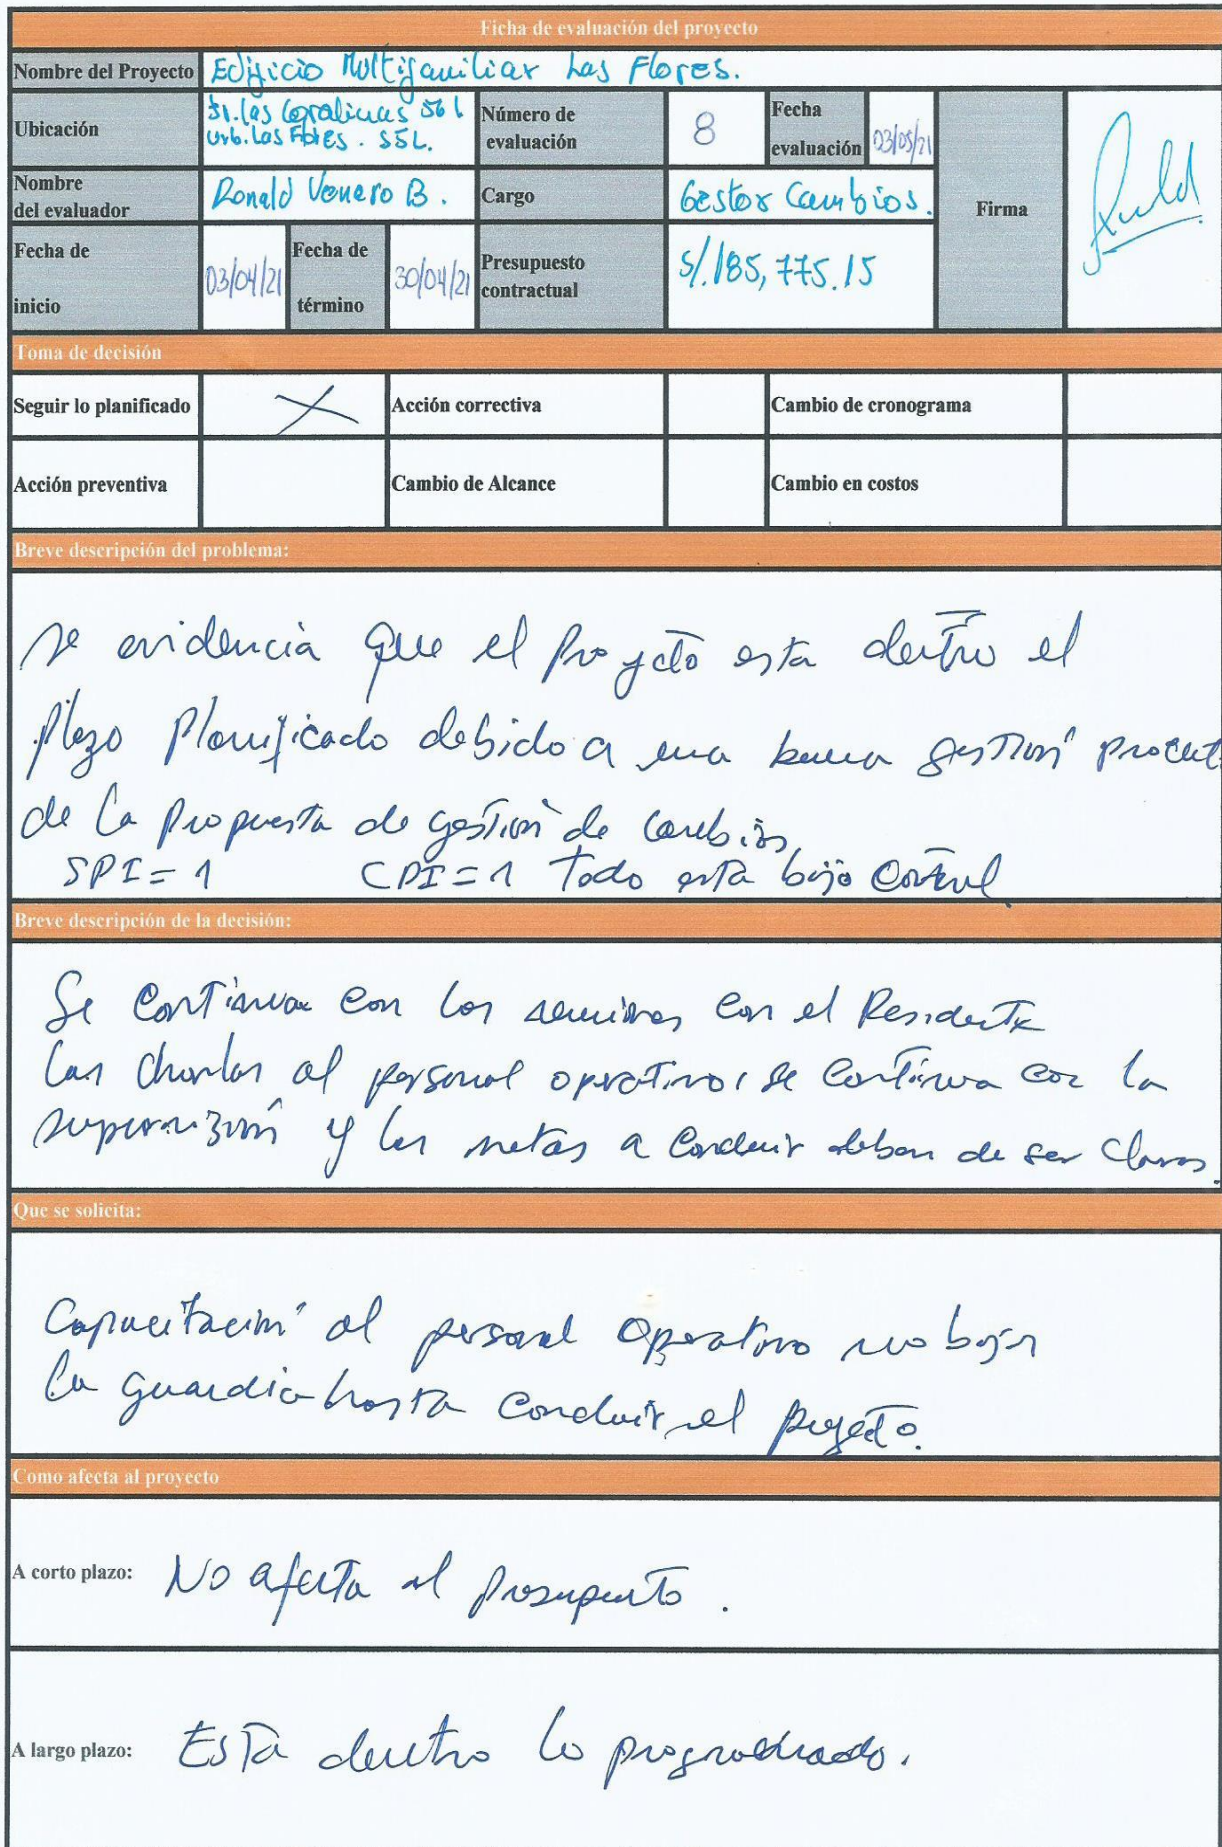 Ficha de evaluación del proyecto
Nombre del Proyecto Edificio Multifamiliar Las Flores.
Ubicación Jr. las Coralinas 561
Urb. Las Flores. SJL.
Número de evaluación 8
Fecha evaluación 03/05/21
Nombre del evaluador Ronald Venero B.
Cargo Gestor Cambios.
Firma
Fecha de inicio 03/04/21
Fecha de término 30/04/21
Presupuesto contractual S/.185,775.15
Toma de decisión
Seguir lo planificado X Acción correctiva Cambio de cronograma
Acción preventiva Cambio de Alcance Cambio en costos
Breve descripción del problema:
se evidencia que el Proyecto esta dentro el
Plazo Planificado debido a una buena gestión
de la Propuesta de gestión de cambios
SPI = 1 CPI = 1 Todo esta bajo Control
Breve descripción de la decisión:
Se Continua con las con el Residente
las charlas al personal operativo, se continua con la
y las metas a deben de ser claras.
Que se solicita:
Capacitación al personal Operativo no bajar
la guardia hasta concluir el proyecto.
Como afecta al proyecto
A corto plazo: No afecta al Presupuesto.
A largo plazo: Esta dentro lo programado.